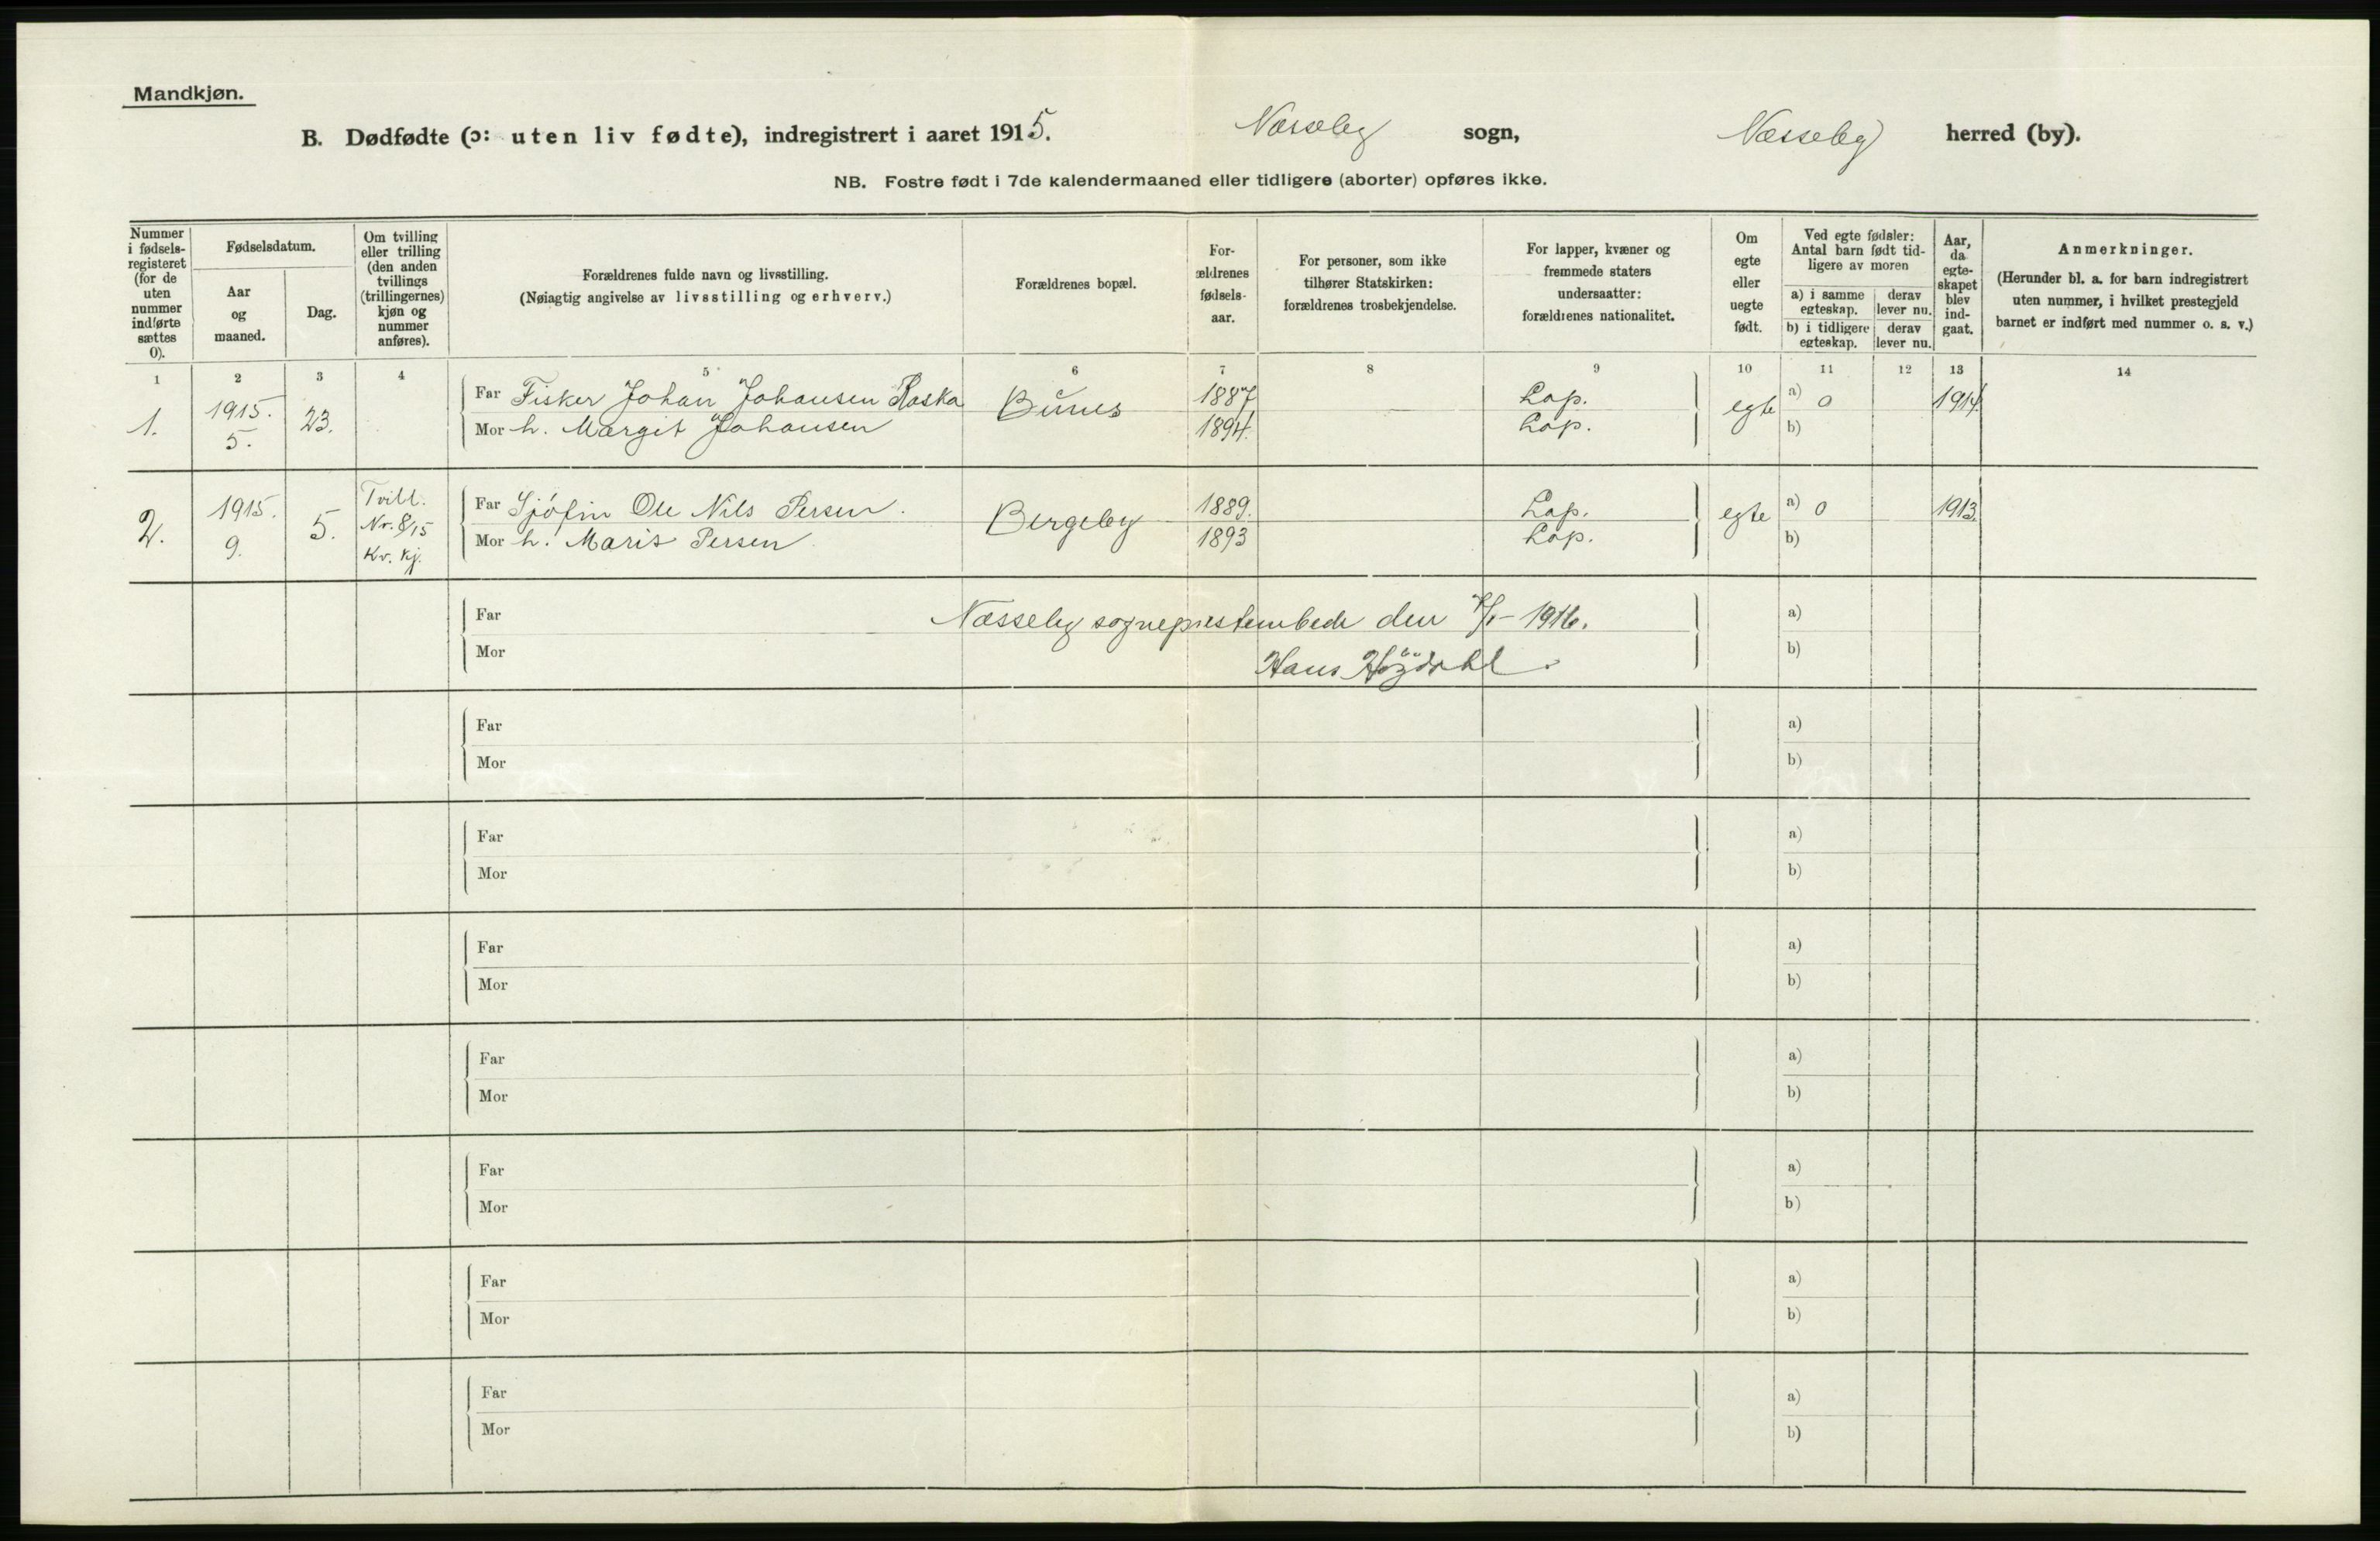 Mandkjøn.
B. Dødfødte (ɔ: uten liv fødte), indregistrert i aaret 1915. Næsseby sogn, Næsseby herred (by).
NB. Fostre født i 7de kalendermaaned eller tidligere (aborter) opføres ikke.
Nummer i fødsels-registeret (for de uten nummer indførte sættes 0).
Fødselsdatum.
Aar og maaned.
Dag.
Om tvilling eller trilling (den anden tvillings (trillingernes) kjøn og nummer anføres).
Forældrenes fulde navn og livsstilling.
(Nøiagtig angivelse av livsstilling og erhverv.)
Forældrenes bopæl.
For-ældrenes fødsels-aar.
For personer, som ikke tilhører Statskirken: forældrenes trosbekjendelse.
For lapper, kvæner og fremmede staters undersaatter: forældrenes nationalitet.
Om egte eller uegte født.
Ved egte fødsler: Antal barn født tid-ligere av moren
a) i samme egteskap. derav lever nu.
b) i tidligere egteskap. derav lever nu.
Aar, da egte-skapet blev ind-gaat.
Anmerkninger.
(Herunder bl. a. for barn indregistrert uten nummer, i hvilket prestegjeld barnet er indført med nummer o. s. v.)
1 2 3 4 5 6 7 8 9 10 11 12 13 14
1. 1915. 5. 23. Far Fisker Johan Johansen Raska Bunes 1887 Lap. egte a) 0 1914.
Mor h. Margit Johansen 1894. Lap. b)
2. 1915. 9. 5. Tvill. Nr. 8/15 Kv. kj. Far Sjöfin Ole Nils Persen. Bergeby 1889. Lap. egte a) 0 1913.
Mor h. Marit Persen 1893 Lap. b)
Far Næsseby sogneprestembede den 1916. a)
Mor Hans Höydahl. b)
Far a)
Mor b)
Far a)
Mor b)
Far a)
Mor b)
Far a)
Mor b)
Far a)
Mor b)
Far a)
Mor b)
Far a)
Mor b)